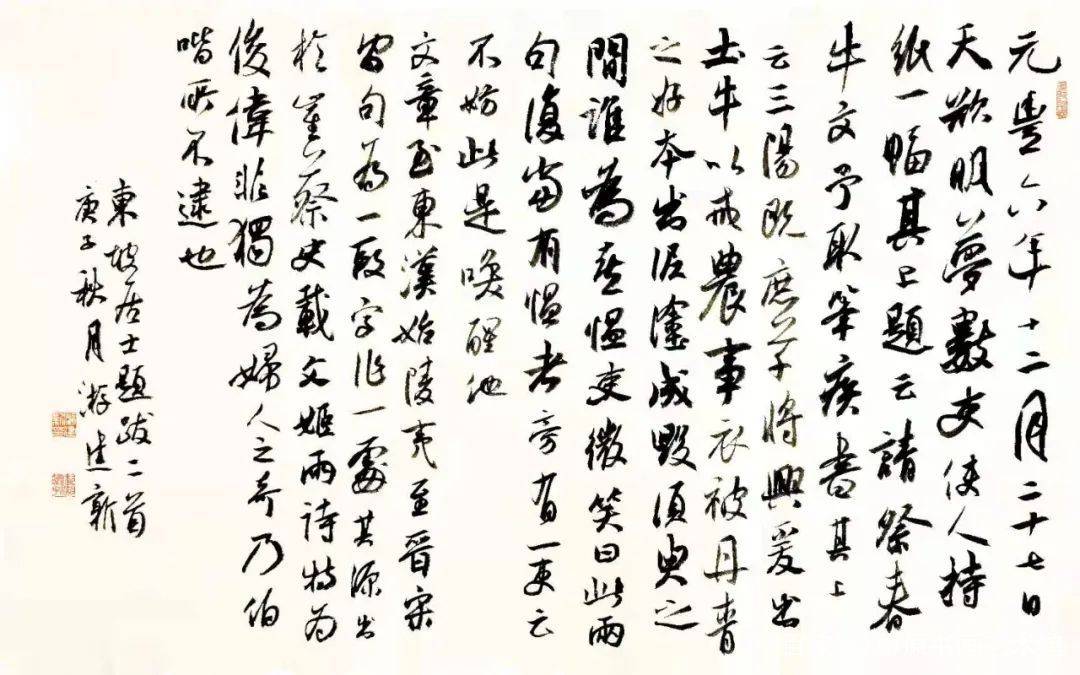 元豐六年十二月二十七日
天欲明夢數吏使人持
紙一幅其上題云請祭春
牛文予取筆疾書其上
云三陽既至庶草將興爰出
土牛以戒農事衣被丹青
之好本出泥塗成毀須臾之
間誰為喜慍吏微笑曰此兩
句復當有慍者旁有一吏云
不妨此是喚醒他
文章至東漢始陵夷至晉宋
間句為一段字作一處其源出
於崔蔡史載文姬兩詩特為
俊偉非獨為婦人之奇乃伯
喈所不逮也
東坡居士題跋二首
庚子秋月 游建新